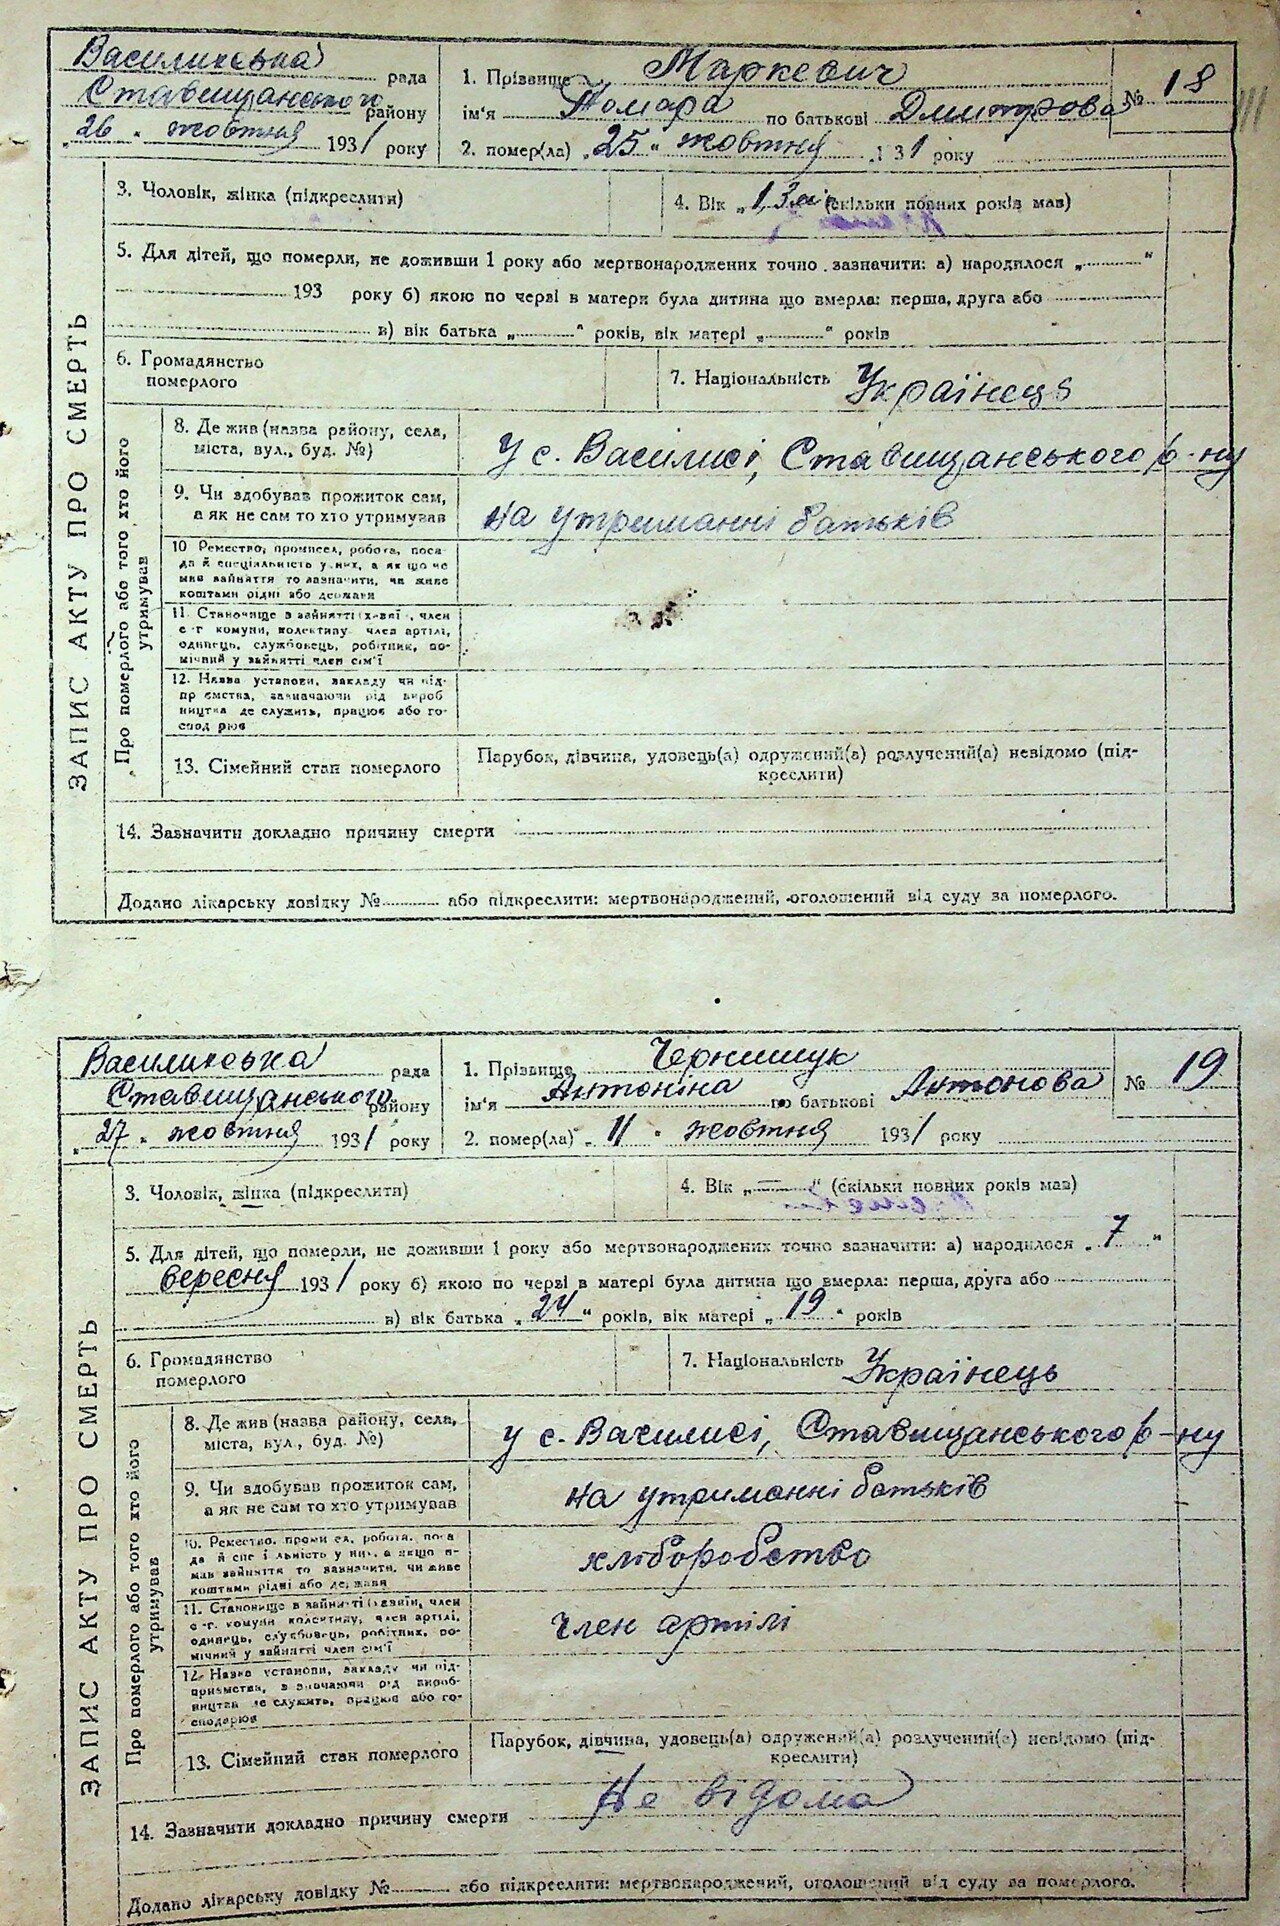 Василиська рада
Ставищанського району
„26„ жовтня 1931 року
1. Прізвище Маркевич
ім'я Томара по батькові Дмитрова
№ 18
2. помер(ла) „25„ жовтня 131 року
3. Чоловік, жінка (підкреслити)
4. Вік „1,3 м (скільки повних років мав)
5. Для дітей, що померли, не доживши 1 року або мертвонароджених точно зазначити: а) народилося „ “
193 року б) якою по черзі в матери була дитина що вмерла: перша, друга або
в) вік батька „ “ років, вік матері „ “ років
6. Громадянство
померлого
7. Національність Українець
ЗАПИС АКТУ ПРО СМЕРТЬ
Про померлого або того хто його
утримував
8. Де жив (назва району, села,
міста, вул., буд. №)
у с. Василисі, Ставищанського р-ну
9. Чи здобував прожиток сам,
а як не сам то хто утримував
на утриманні батьків
10 Ремество, промисел, робота, поса-
да й спеціяльність у них, а як що не
мав зайняття то зазначити, чи живе
коштами рідні або держави
11. Становище в зайнятті , член
с-г комуни, колективу член артілі,
одинець, службовець, робітник, по-
мічний у зайнятті член сім'ї
12. Назва установи, закладу чи під-
пр ємства, зазначаючи рід вироб
ництва де служить, працює або го-
спод рює
13. Сімейний стан померлого
Парубок, дівчина, удовець(а) одружений(а) розлучений(а) невідомо (під-
креслити)
14. Зазначити докладно причину смерти
Додано лікарську довідку № або підкреслити: мертвонароджений, оголошений від суду за померлого.
Василиська рада
Ставищанського району
„27„ жовтня 1931 року
1. Прізвище Чернишук
ім'я Антоніна по батькові Антонова
№ 19
2. помер(ла) „11„ жовтня 1931 року
3. Чоловік, жінка (підкреслити)
4. Вік „—“ (скільки повних років мав)
5. Для дітей, що померли, не доживши 1 року або мертвонароджених точно зазначити: а) народилося „7“
вересня 1931 року б) якою по черзі в матері була дитина що вмерла: перша, друга або
в) вік батька „24“ років, вік матері „19“ років
6. Громадянство
померлого
7. Національність Українець
ЗАПИС АКТУ ПРО СМЕРТЬ
Про померлого або того хто його
утримував
8. Де жив (назва району, села,
міста, вул., буд. №)
у с. Василисі, Ставищанського р-ну
9. Чи здобував прожиток сам,
а як не сам то хто утримував
на утриманні батьків
10. Ремество, проми ел, робота, поса
да й спе і льність у них, а якщо н-
мав зайняття то зазначити, чи живе
коштами рідні або держави
хліборобство
11. Становище в зайнятті , член
с-г. комуни колективу, член артілі,
одинець, службовець, робітник, по-
мічний у зайнятті член сім'ї
член артілі
12. Назва установи, закладу чи під-
приємства, з значаючи рід вироб-
ництва де служить, працює або го-
сподарює
13. Сімейний стан померлого
Парубок, дівчина, удовець(а) одружений(а) розлучений(а) невідомо (під-
креслити)
14. Зазначити докладно причину смерти
Не відома
Додано лікарську довідку № або підкреслити: мертвонароджений, оголошений від суду за померлого.